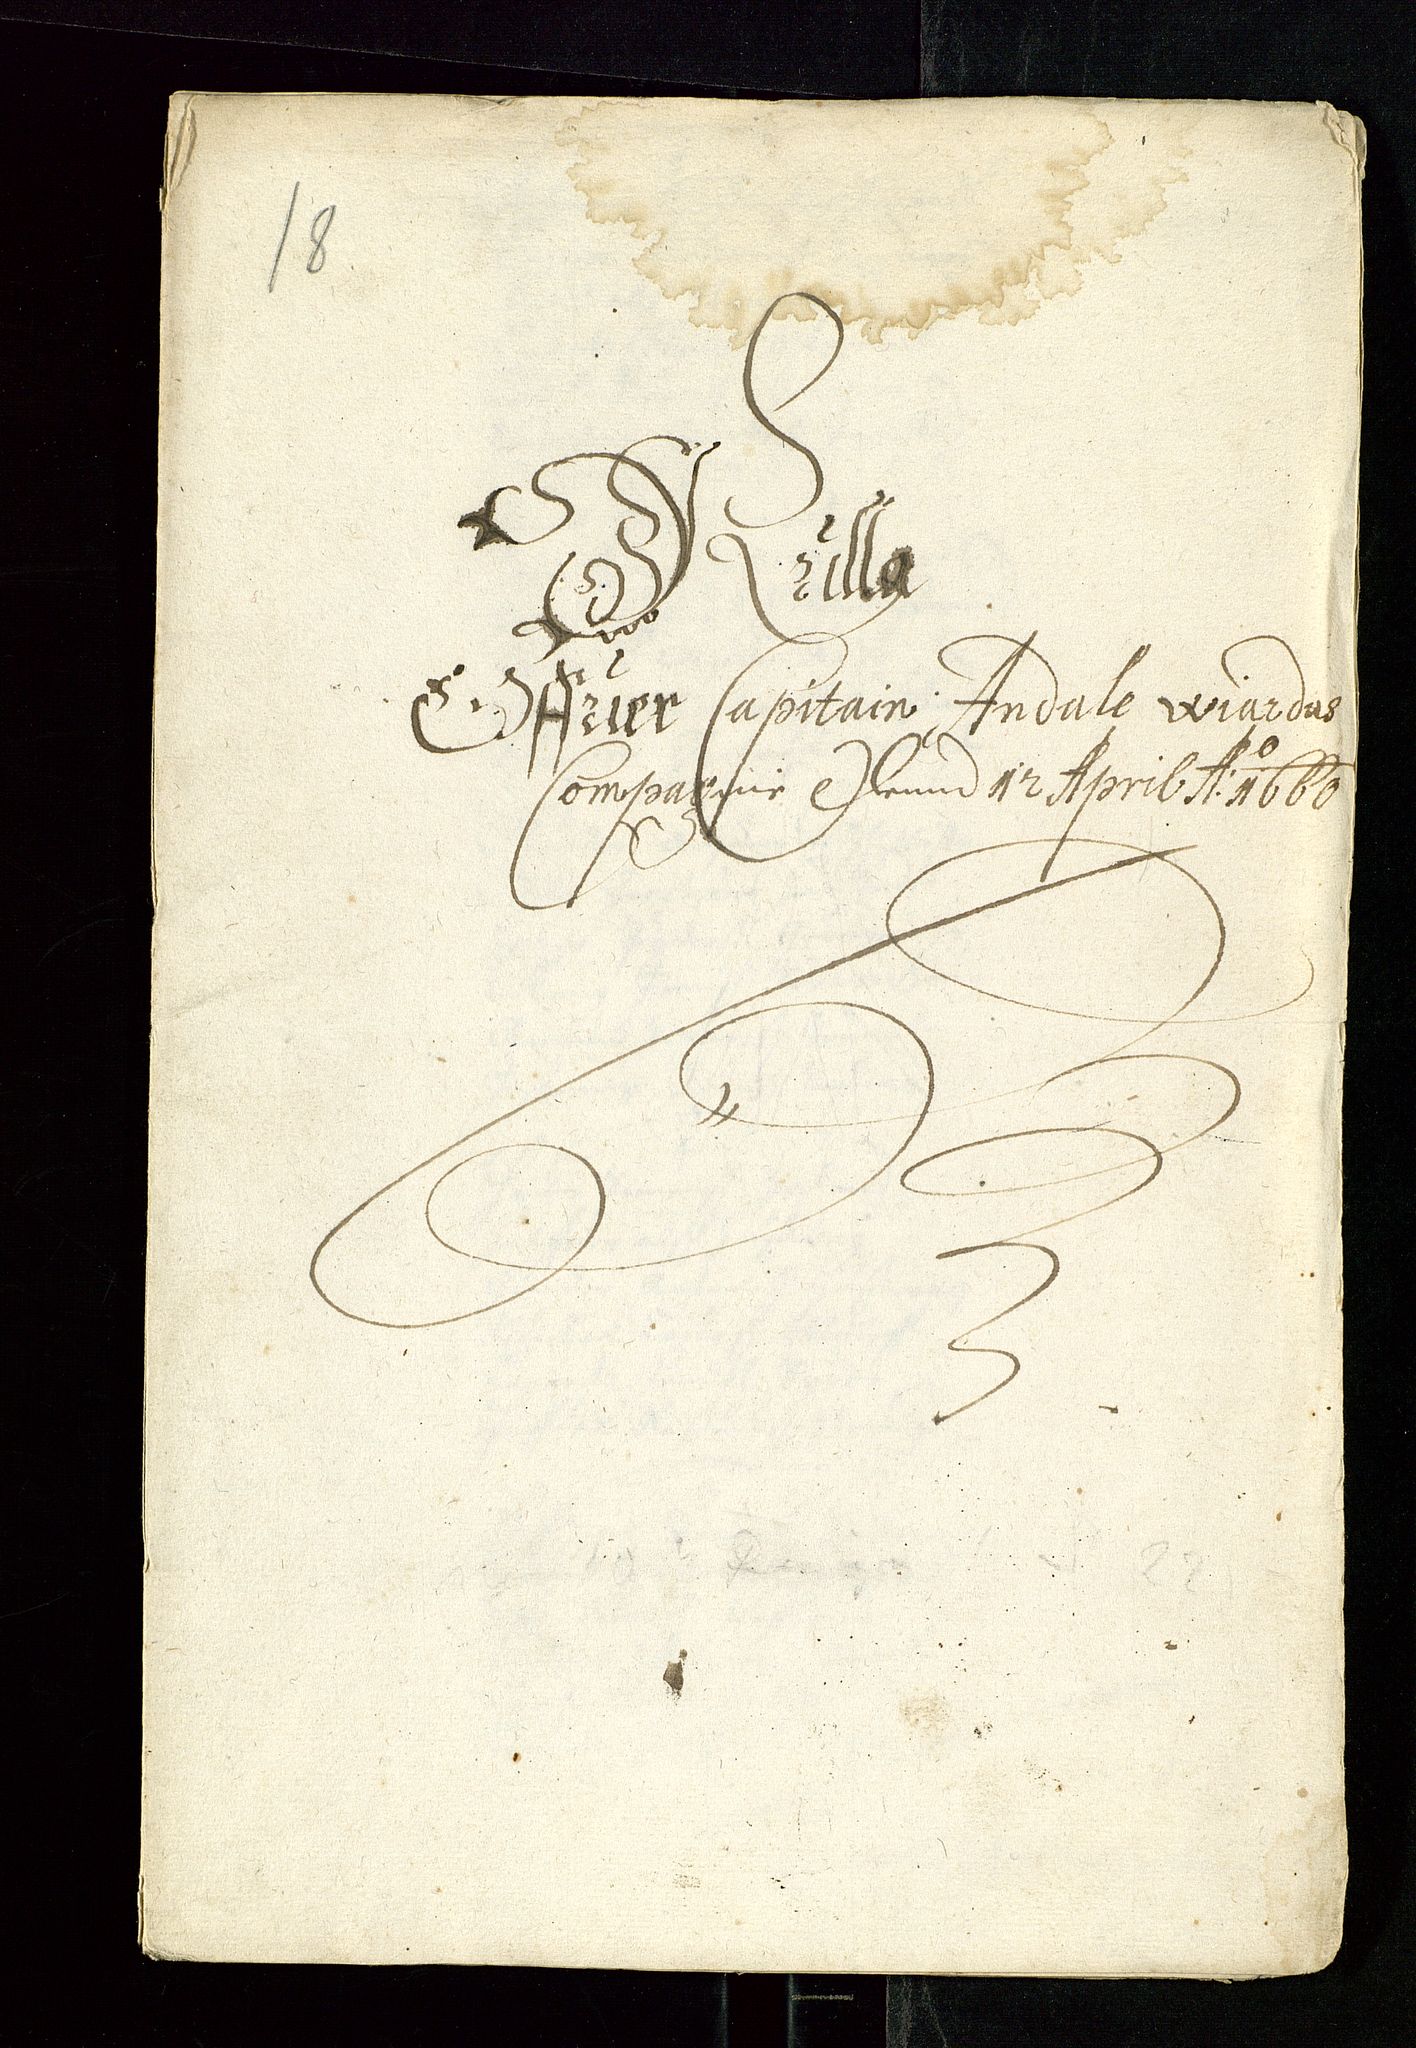 18
Rulla
Öffuer Capitain Andale wiardas
Compagnie denn 12 April Ao: 1660